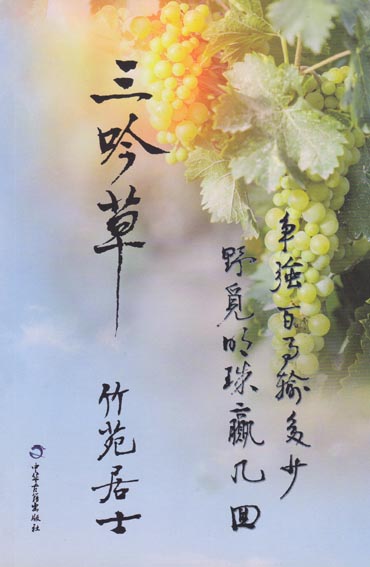 三吟草
争强百事输多少
野觅明珠赢几回
竹苑居士
中华古籍出版社